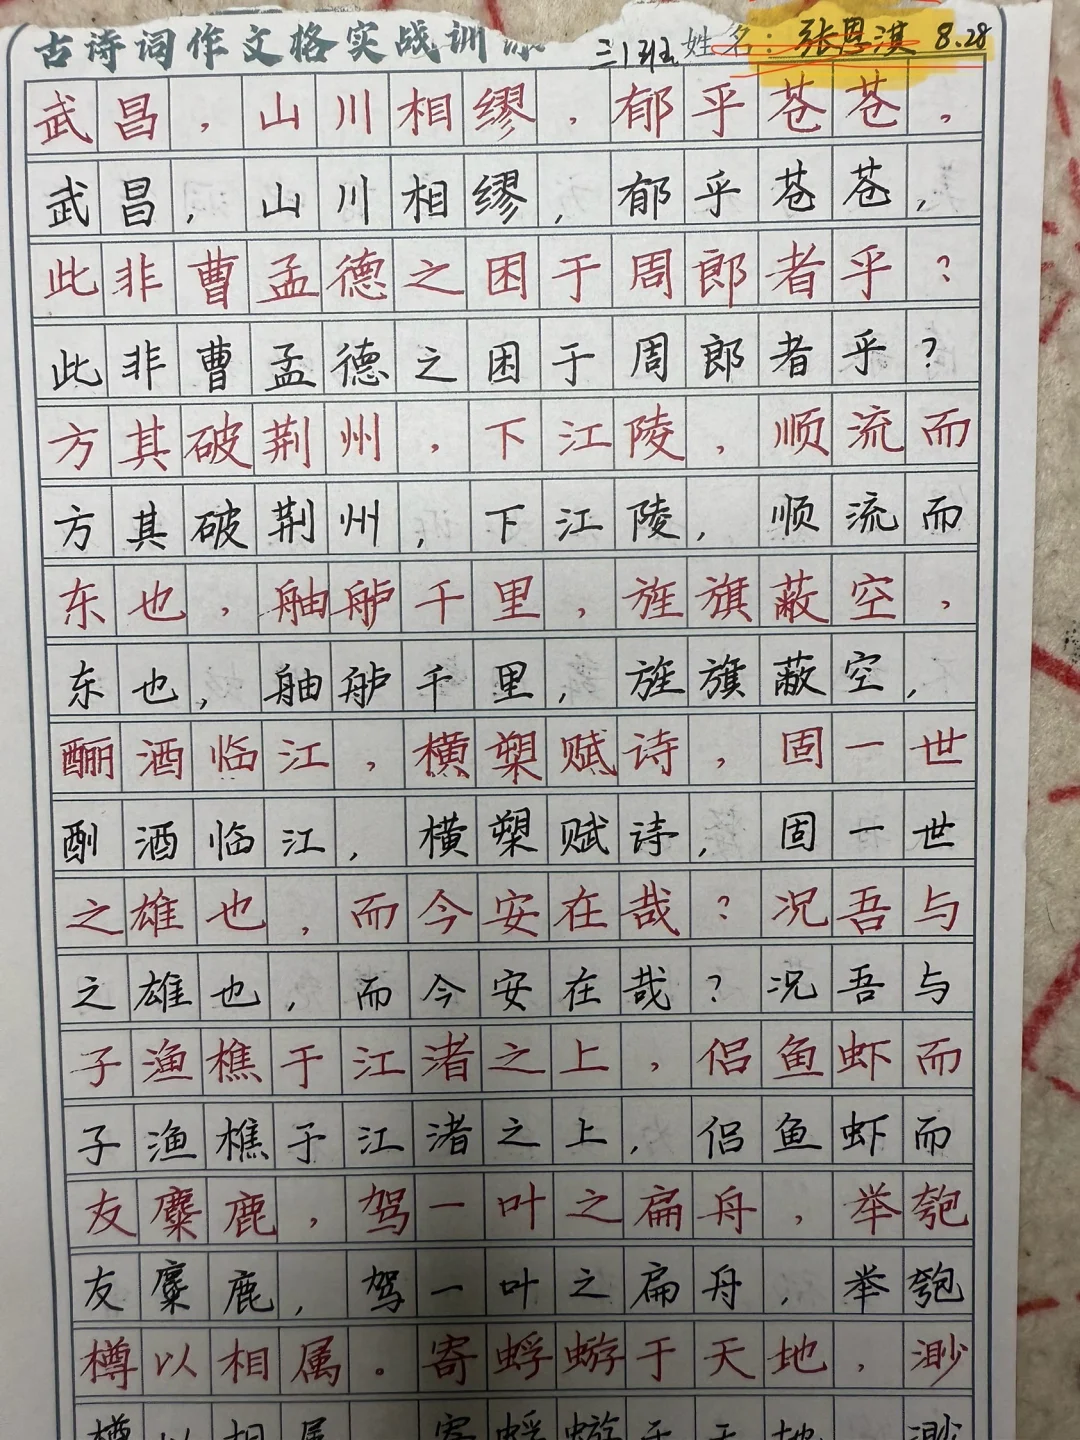 古诗词作文格实战训
三1班 姓名：张恩淇 8.28
武昌，山川相缪，郁乎苍苍，
武昌，山川相缪，郁乎苍苍，
此非曹孟德之困于周郎者乎？
此非曹孟德之困于周郎者乎？
方其破荆州，下江陵，顺流而
方其破荆州，下江陵，顺流而
东也，舳舻千里，旌旗蔽空，
东也，舳舻千里，旌旗蔽空，
酾酒临江，横槊赋诗，固一世
酒临江，横槊赋诗，固一世
之雄也，而今安在哉？况吾与
之雄也，而今安在哉？况吾与
子渔樵于江渚之上，侣鱼虾而
子渔樵于江渚之上，侣鱼虾而
友麋鹿，驾一叶之扁舟，举匏
友麋鹿，驾一叶之扁舟，举匏
樽以相属。寄蜉蝣于天地，渺
樽以相属 寄蜉蝣于天地 渺